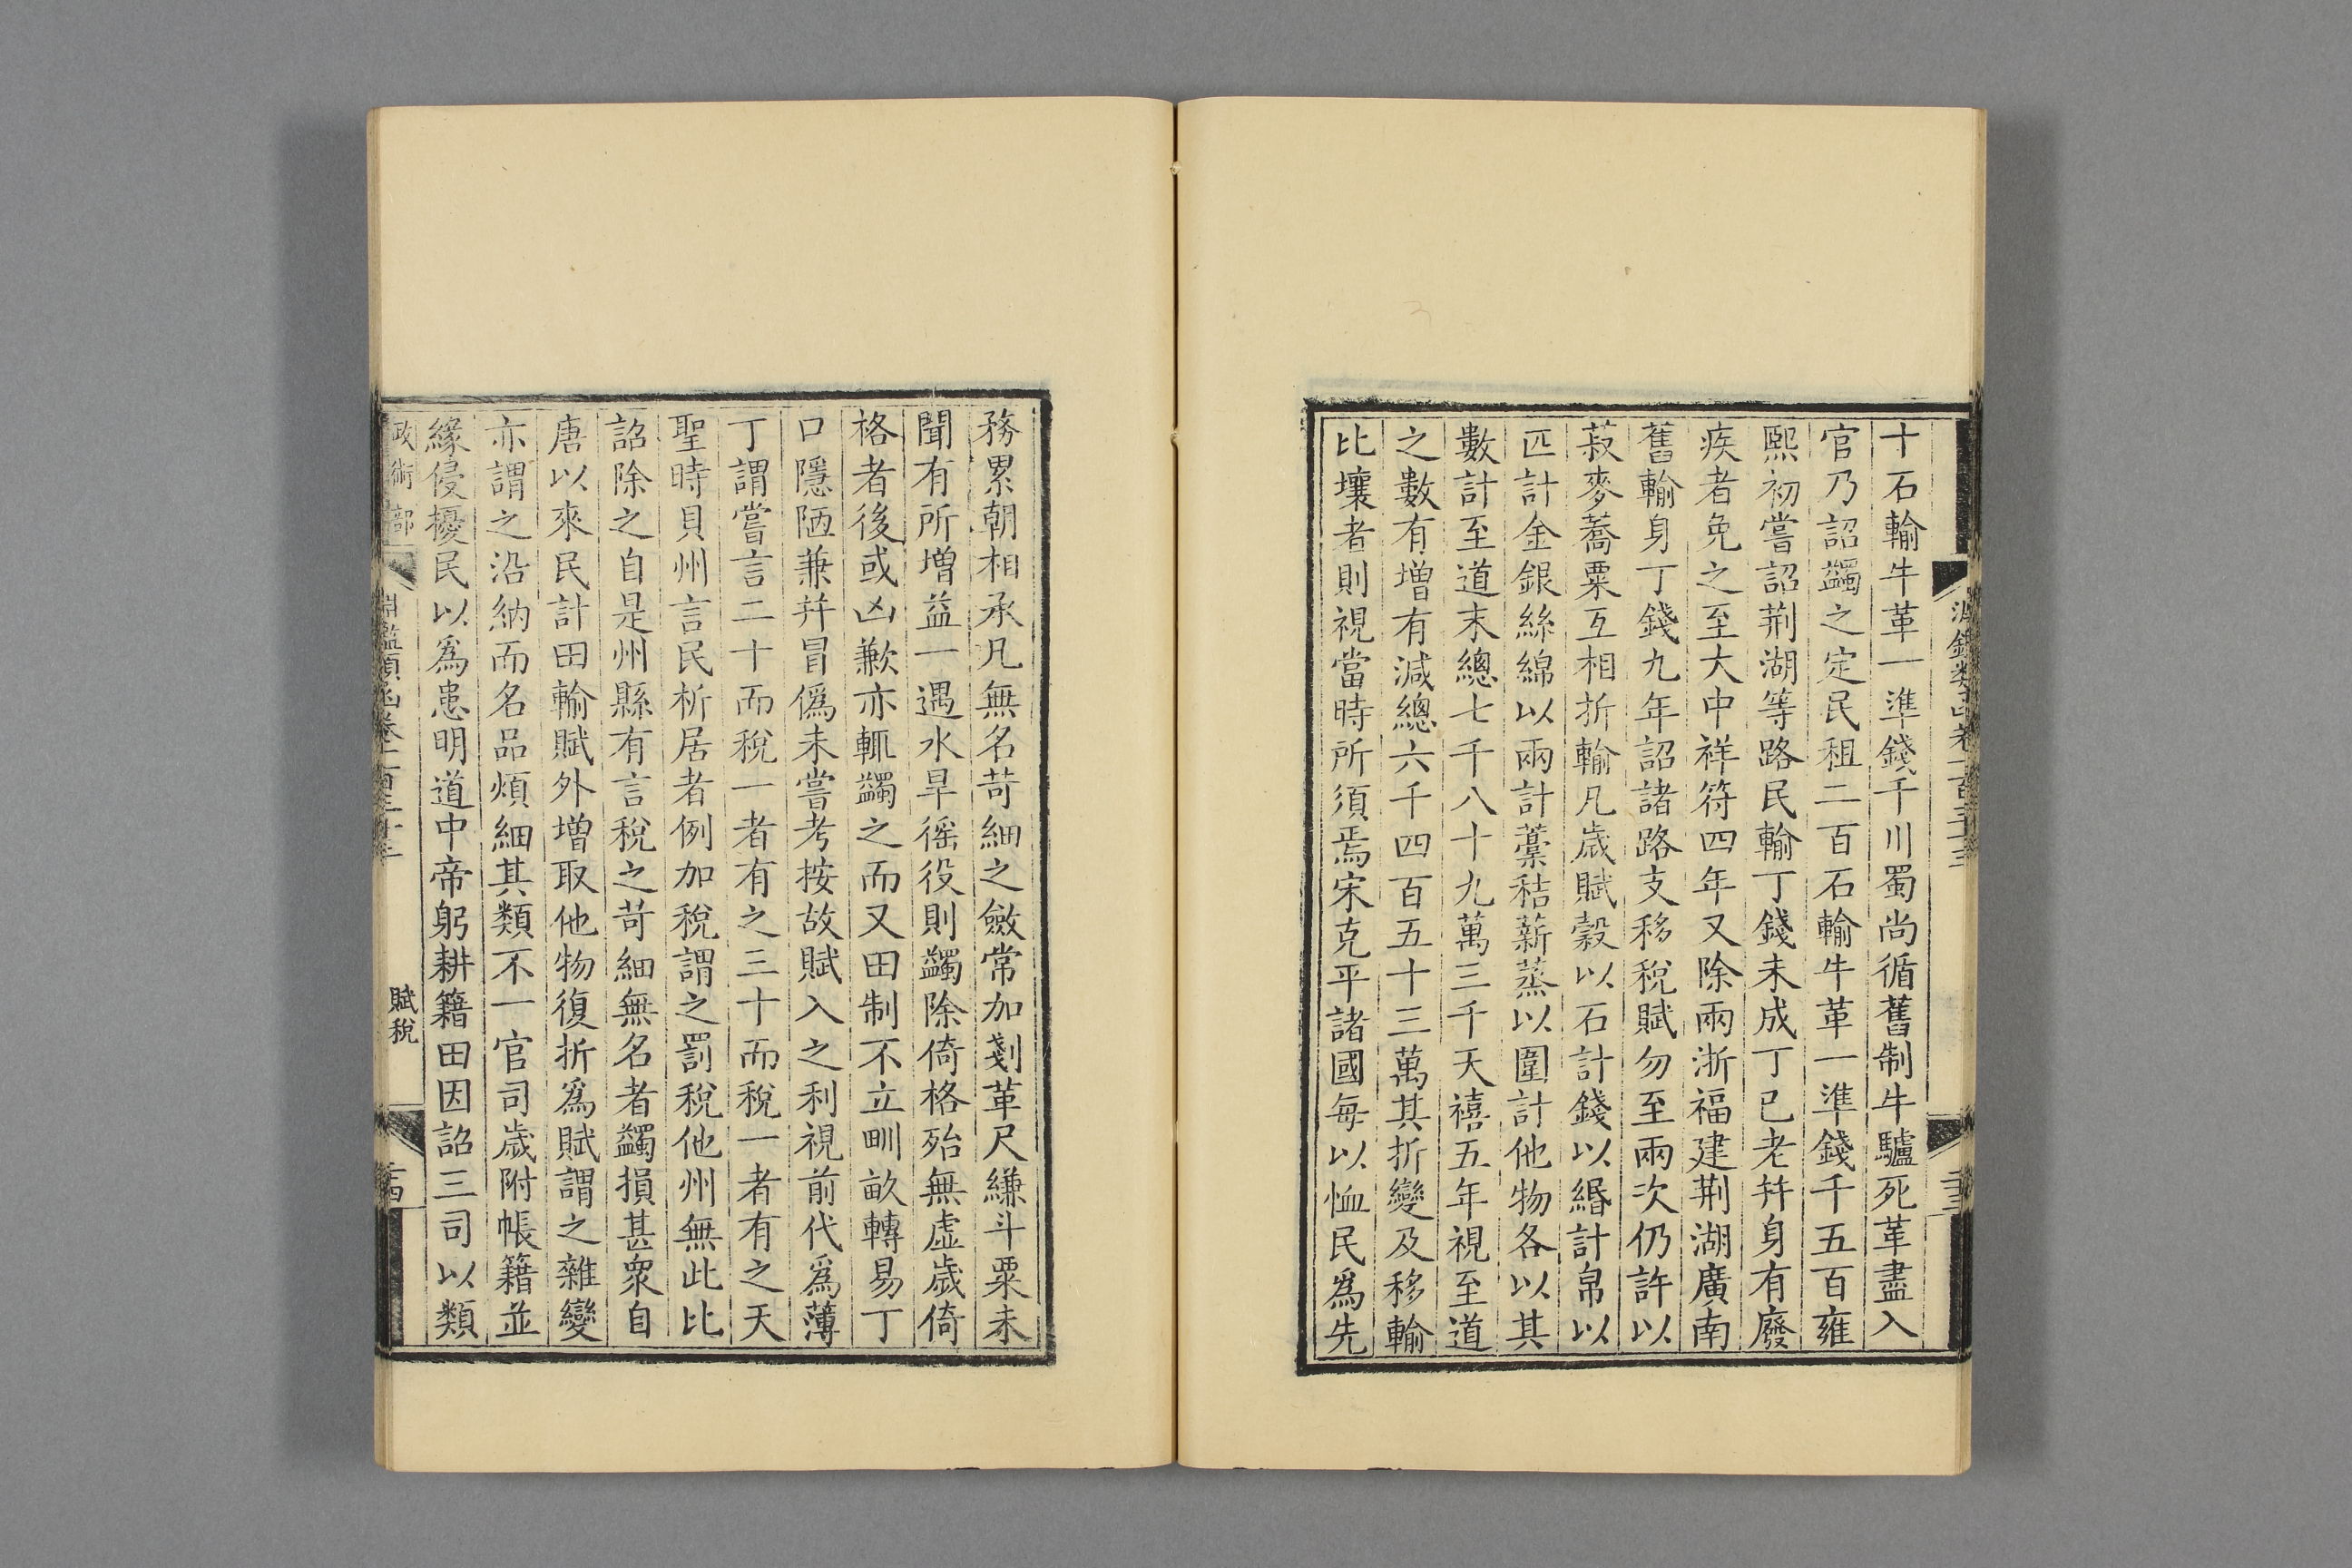 十石輸牛革一準錢千川蜀尚循舊制牛驢死革盡入
官乃詔蠲之定民租二百石輸牛革一準錢千五百雍
熙初嘗詔荆湖等路民輸丁錢未成丁已老幷身有廢
疾者免之至大中祥符四年又除兩浙福建荆湖廣南
舊輸身丁錢九年詔諸路支移稅賦勿至兩次仍許以
菽麥蕎粟互相折輸凡歳賦穀以石計錢以緡計帛以
匹計金銀絲綿以兩計藁秸薪蒸以圍計他物各以其
數計至道末總七千八十九萬三千天禧五年視至道
之數有增有減總六千四百五十三萬其折變及移輸
比壤者則視當時所須焉宋克平諸國每以恤民爲先
務累朝相承凡無名苛細之斂常加剗革尺縑斗粟未
聞有所增益一遇水旱徭役則蠲除倚格殆無虛歳倚
格者後或凶歉亦輒蠲之而又田制不立甽畝轉易丁
口隱陋兼幷冒僞未嘗考按故賦入之利視前代爲薄
丁謂嘗言二十而稅一者有之三十而稅一者有之天
聖時貝州言民析居者例加稅謂之罰稅他州無此比
詔除之自是州縣有言稅之苛細無名者蠲損甚衆自
唐以來民計田輸賦外增取他物復折爲賦謂之雜變
亦謂之沿納而名品煩細其類不一官司歳附帳籍並
緣侵擾民以爲患明道中帝躬耕籍田因詔三司以類
政術部
賦稅